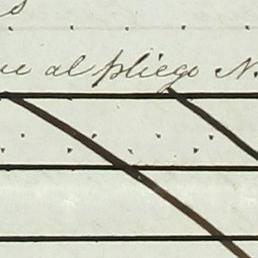 al pliego N.